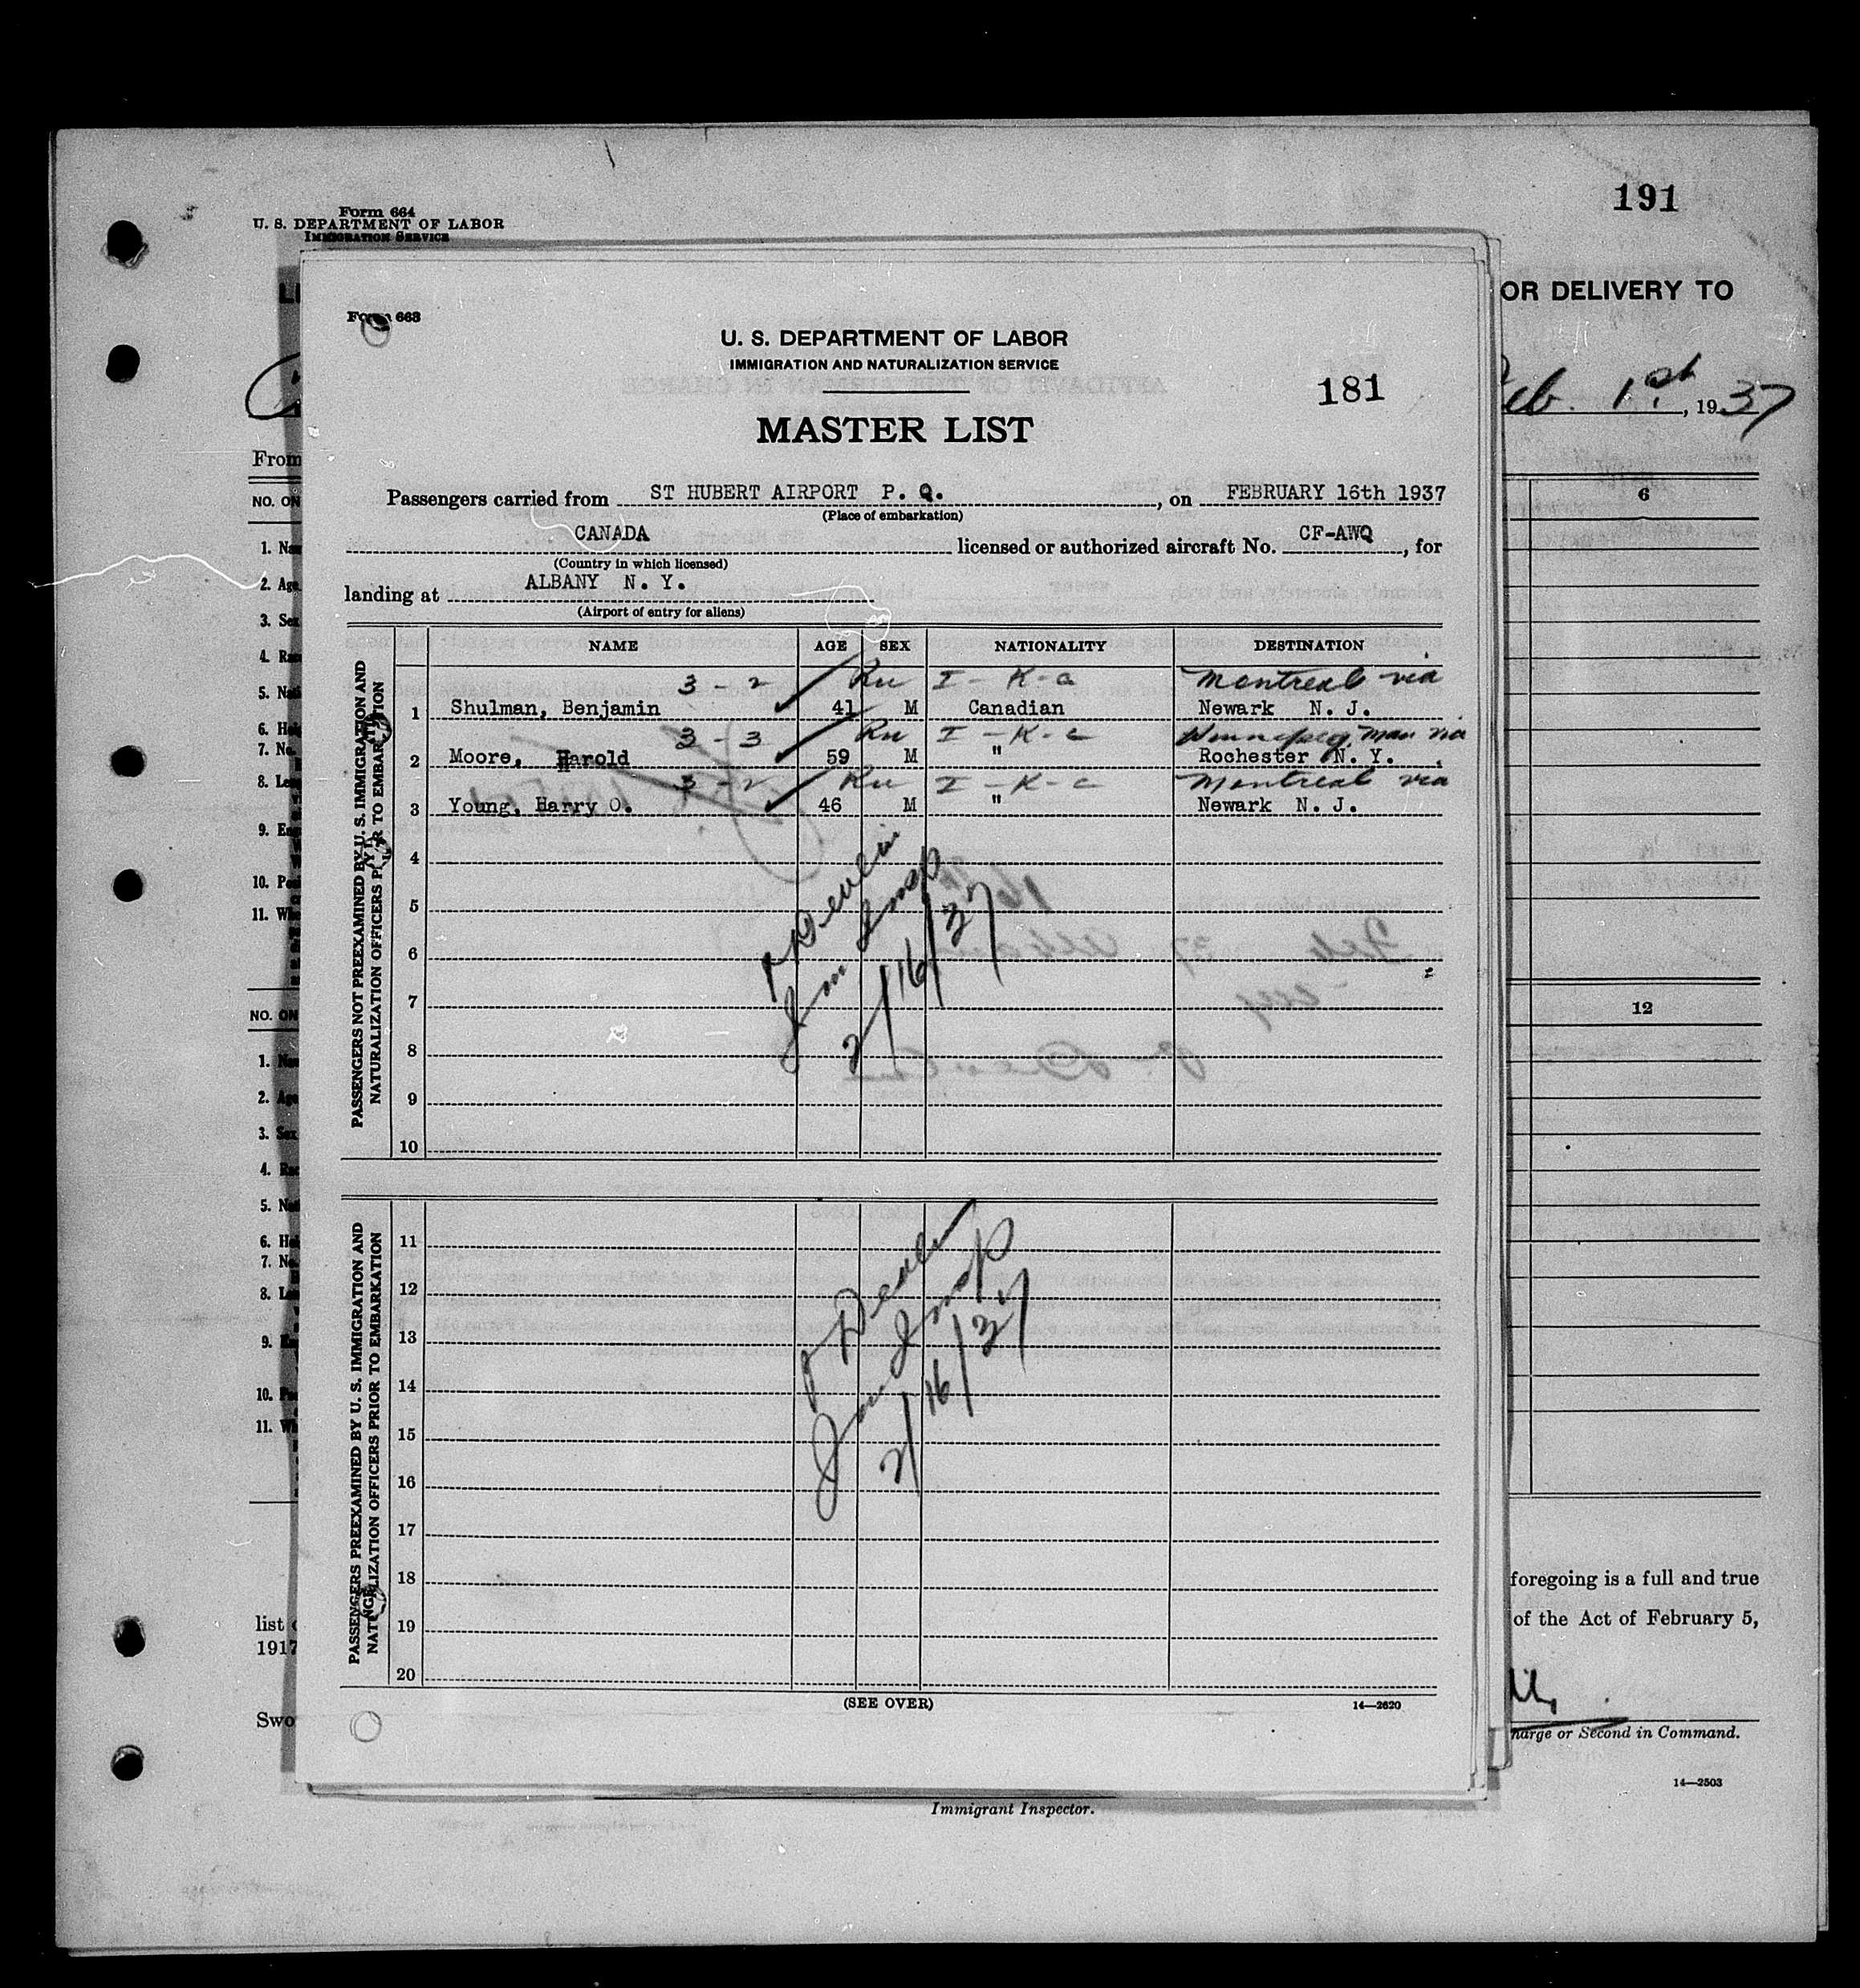 191
Form 664
U. S. DEPARTMENT OF LABOR
IMMIGRATION SERVICE
OR DELIVERY TO
1st, 1937
From
NO. ON
6
1.
2. Age
3. Sex
4.
5.
6.
7. No.
8.
9.
10.
11.
NO. ON
12
1.
2. Age
3. Sex
4.
5.
6.
7. No.
8.
9.
10.
11.
foregoing is a full and true
list
of the Act of February 5,
1917
harge or Second in Command.
14—2503
Immigrant Inspector.
Form 663
U. S. DEPARTMENT OF LABOR
IMMIGRATION AND NATURALIZATION SERVICE
181
MASTER LIST
Passengers carried from ST HUBERT AIRPORT P. Q., on FEBRUARY 16th 1937
(Place of embarkation)
CANADA licensed or authorized aircraft No. CF-AWQ, for
(Country in which licensed)
landing at ALBANY N. Y.
(Airport of entry for aliens)
NAME AGE SEX NATIONALITY DESTINATION
PASSENGERS NOT PREEXAMINED BY U. S. IMMIGRATION AND
NATURALIZATION OFFICERS PRIOR TO EMBARKATION
3 - 2 I - K - a Montreal via
1 Shulman, Benjamin 41 M Canadian Newark N. J.
3 - 3 I - K - c Winnipeg, Man via
2 Moore, Harold 59 M " Rochester N. Y.
3 - 2 I - K - c Montreal via
3 Young, Harry O. 46 M " Newark N. J.
4
5
6
7
8
9
10
Devlin
Imm Insp
2/16/37
PASSENGERS PREEXAMINED BY U. S. IMMIGRATION AND
NATURALIZATION OFFICERS PRIOR TO EMBARKATION
11
12
13
14
15
16
17
18
19
20
Devlin
Imm Insp
2/16/37
(SEE OVER)
14—2620